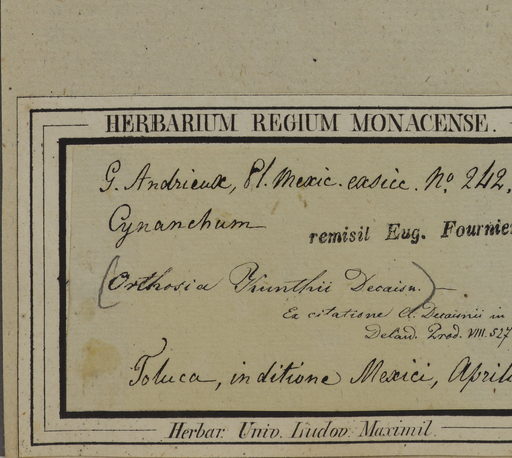 HERBARIUM REGIUM MONACENSE.
G. Andrieux, Pl. Mexic. exsicc. No. 242.
Cynanchum
remisit Eug. Fournier
(Orthosia Kunthii Decaisn.)
Ex citatione cl. Decaisnii in
Decand. Prod. VIII. 527
Toluca, in ditione Mexici, Aprili
Herbar. Univ. Ludov. Maximil.